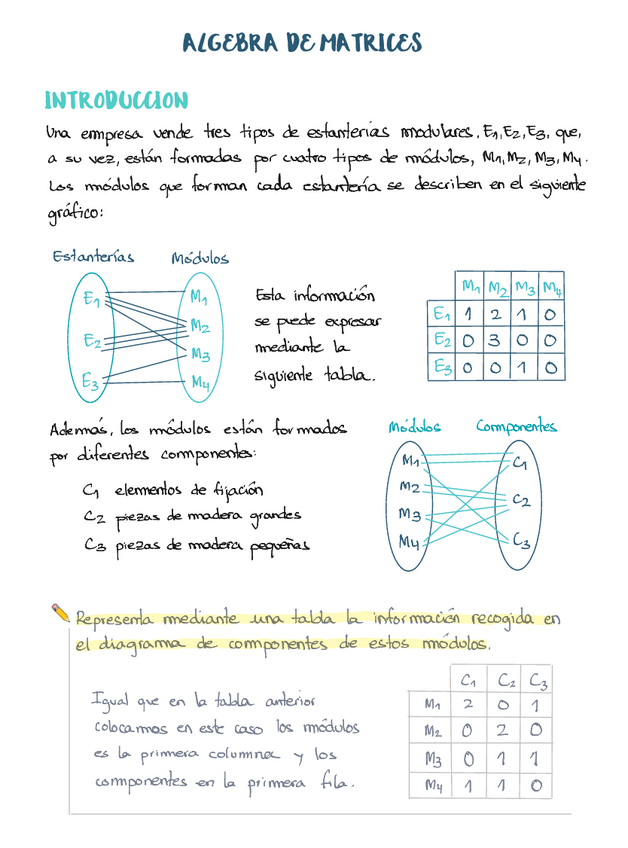 ALGEBRA DE MATRICES
INTRODUCCION
Una empresa vende tres tipos de estanterías modulares, E1, E2, E3, que,
a su vez, están formadas por cuatro tipos de módulos, M1, M2, M3, M4.
Los módulos que forman cada estantería se describen en el siguiente
gráfico:
Estanterías Módulos
E1
E2
E3
M1
M2
M3
M4
Esta información
se puede expresar
mediante la
siguiente tabla.
M1 M2 M3 M4
E1 1 2 1 0
E2 0 3 0 0
E3 0 0 1 0
Además, los módulos están formados
por diferentes componentes:
C1 elementos de fijación
C2 piezas de madera grandes
C3 piezas de madera pequeñas
Módulos Componentes
M1
M2
M3
M4
C1
C2
C3
Representa mediante una tabla la información recogida en
el diagrama de componentes de estos módulos.
Igual que en la tabla anterior
colocamos en este caso los módulos
es la primera columna y los
componentes en la primera fila.
C1 C2 C3
M1 2 0 1
M2 0 2 0
M3 0 1 1
M4 1 1 0